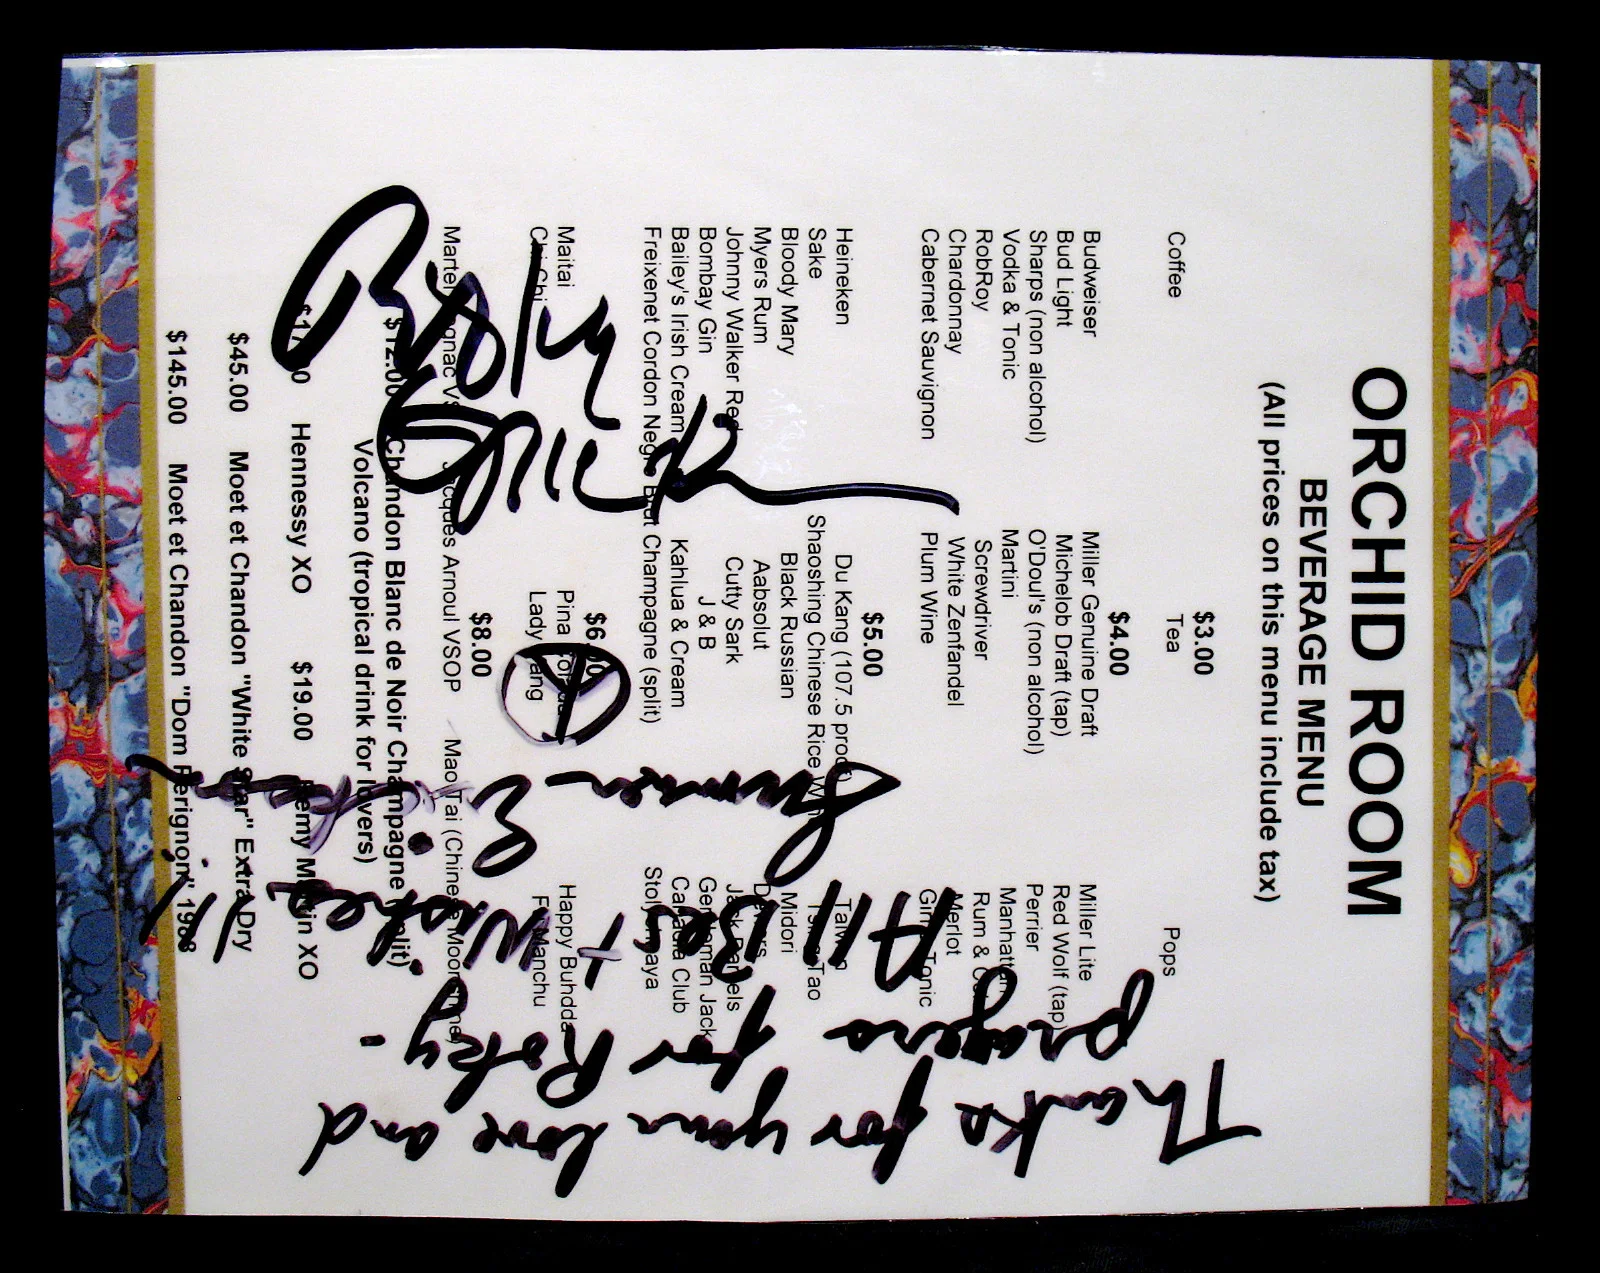 ORCHID ROOM
BEVERAGE MENU
(All prices on this menu include tax)
$3.00
Coffee Tea Pops
$4.00
Budweiser Miller Genuine Draft Miller Lite
Bud Light Michelob Draft (tap) Red Wolf (tap)
Sharps (non alcohol) O'Doul's (non alcohol) Perrier
Vodka & Tonic Martini Manhattan
RobRoy Screwdriver Rum &
Chardonnay White Zenfandel Merlot
Cabernet Sauvignon Plum Wine Gin Tonic
$5.00
Heineken Du Kang (107.5 proof)
Sake Shaoshing Chinese Rice Tao
Bloody Mary Black Russian Midori
Myers Rum Aabsolut
Johnny Walker Red Cutty Sark Jack Daniels
Bombay Gin J & B Gentleman Jack
Bailey's Irish Cream Kahlua & Cream Canadia Club
Freixenet Cordon Negro Brut Champagne (split)
$6.00
Maitai Pina Happy Buhdda
Chi Chi Lady Fu Manchu
$8.00
Jacques Arnoul VSOP Mao Tai (Chinese Moonshine)
$12.00 Chandon Blanc de Noir Champagne (split)
Volcano (tropical drink for lovers)
Hennessy XO $19.00 Remy Martin XO
$45.00 Moet et Chandon "White Star" Extra Dry
$145.00 Moet et Chandon "Dom Perignon" 1988
Roky Erickson
Thanks for your love and
prayers for Roky -
All Best Wishes.
Sumner Erickson